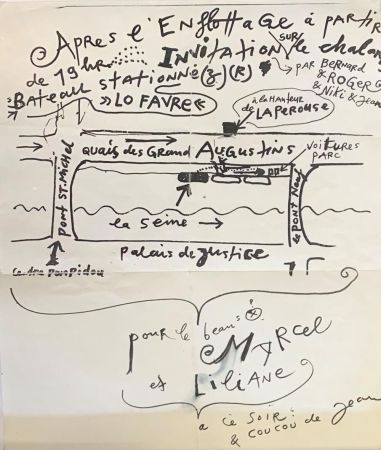 APRES l'ENFLOTTAGE à PARTIR
de 19 hr...... INVITATION SUR le chaland
BATEAU STATIONNÉ (3) (R) PAR BERNARD
& ROGER G
& Niki & Jean
»LO FAVRE«
à la HAUTEUR
de LAPEROUSE
QUAIS des GRAND AUGUSTINS
VOITURES
PARC
PONT ST. MicHEl
le PONT NEUF
la SEiNE →
PALAIS de JUSTICE
Centre Pompidou
pour le beau:
MARCEL
et LILIANE
à CE SOIR:
& COUCOU de Jean